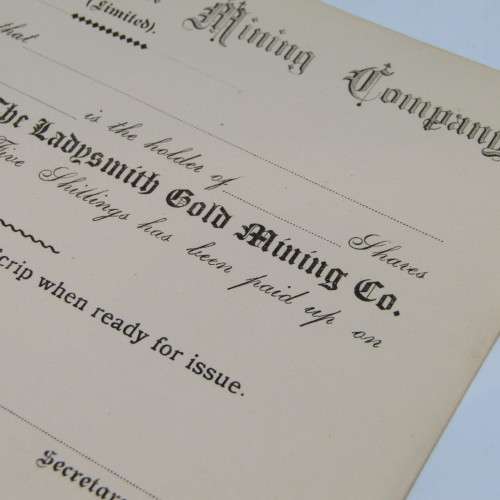 Mining Company
(Limited).
that
is the holder of Shares
The Ladysmith Gold Mining Co.
Five Shillings has been paid up on
Scrip when ready for issue.
Secretary